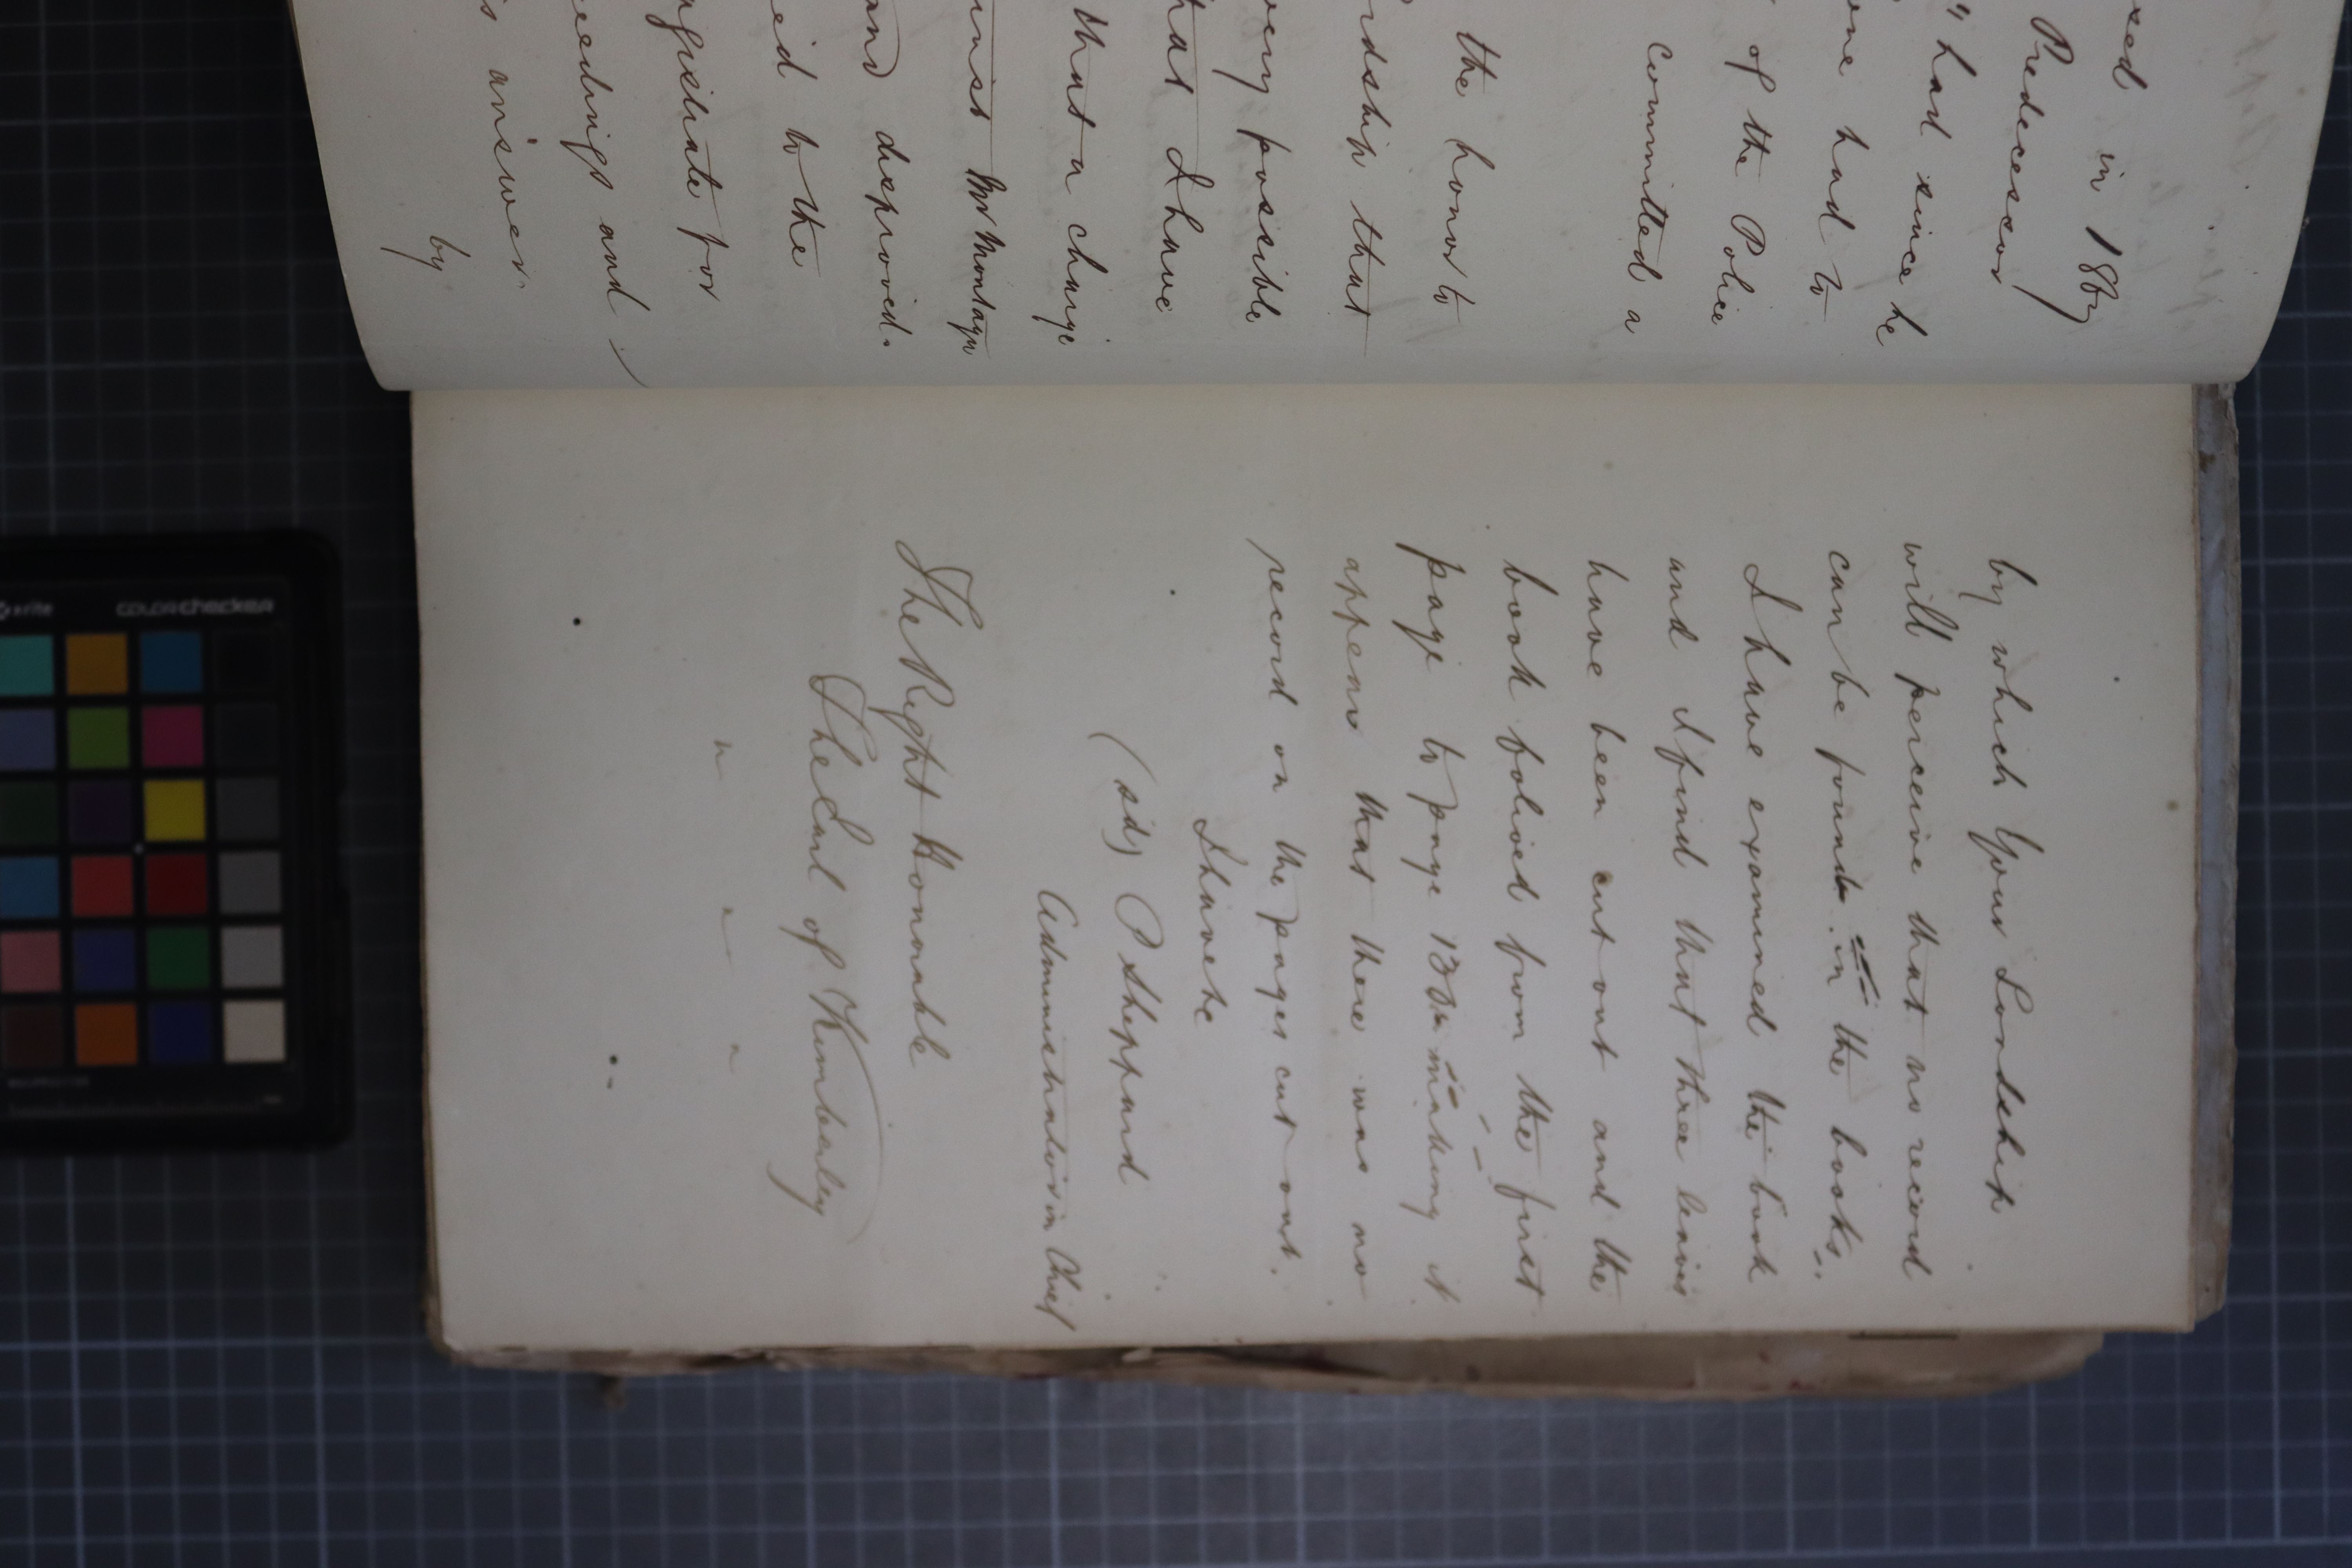 xed in 1867
Predecessor
" had since he
one had to
of the Police
committed a
the honor to
rdship that
very possible
that I have
that a charge
against Mr Montagu
and disproved.
ed to the
agistrate for
eedings and
s answer.
by
by which Your Lordship
will perceive that no record
can be found in the books.
I have examined the book
and I find that three leaves
have been cut out and the
book folioed from the first
page to page 138 making it
appear that there was no
record on the pages cut out.
I have &c
(sd) P Sheppard
Administrator in Chief
The Right Honorable
The Earl of Kimberley
" " "
x-rite colorchecker